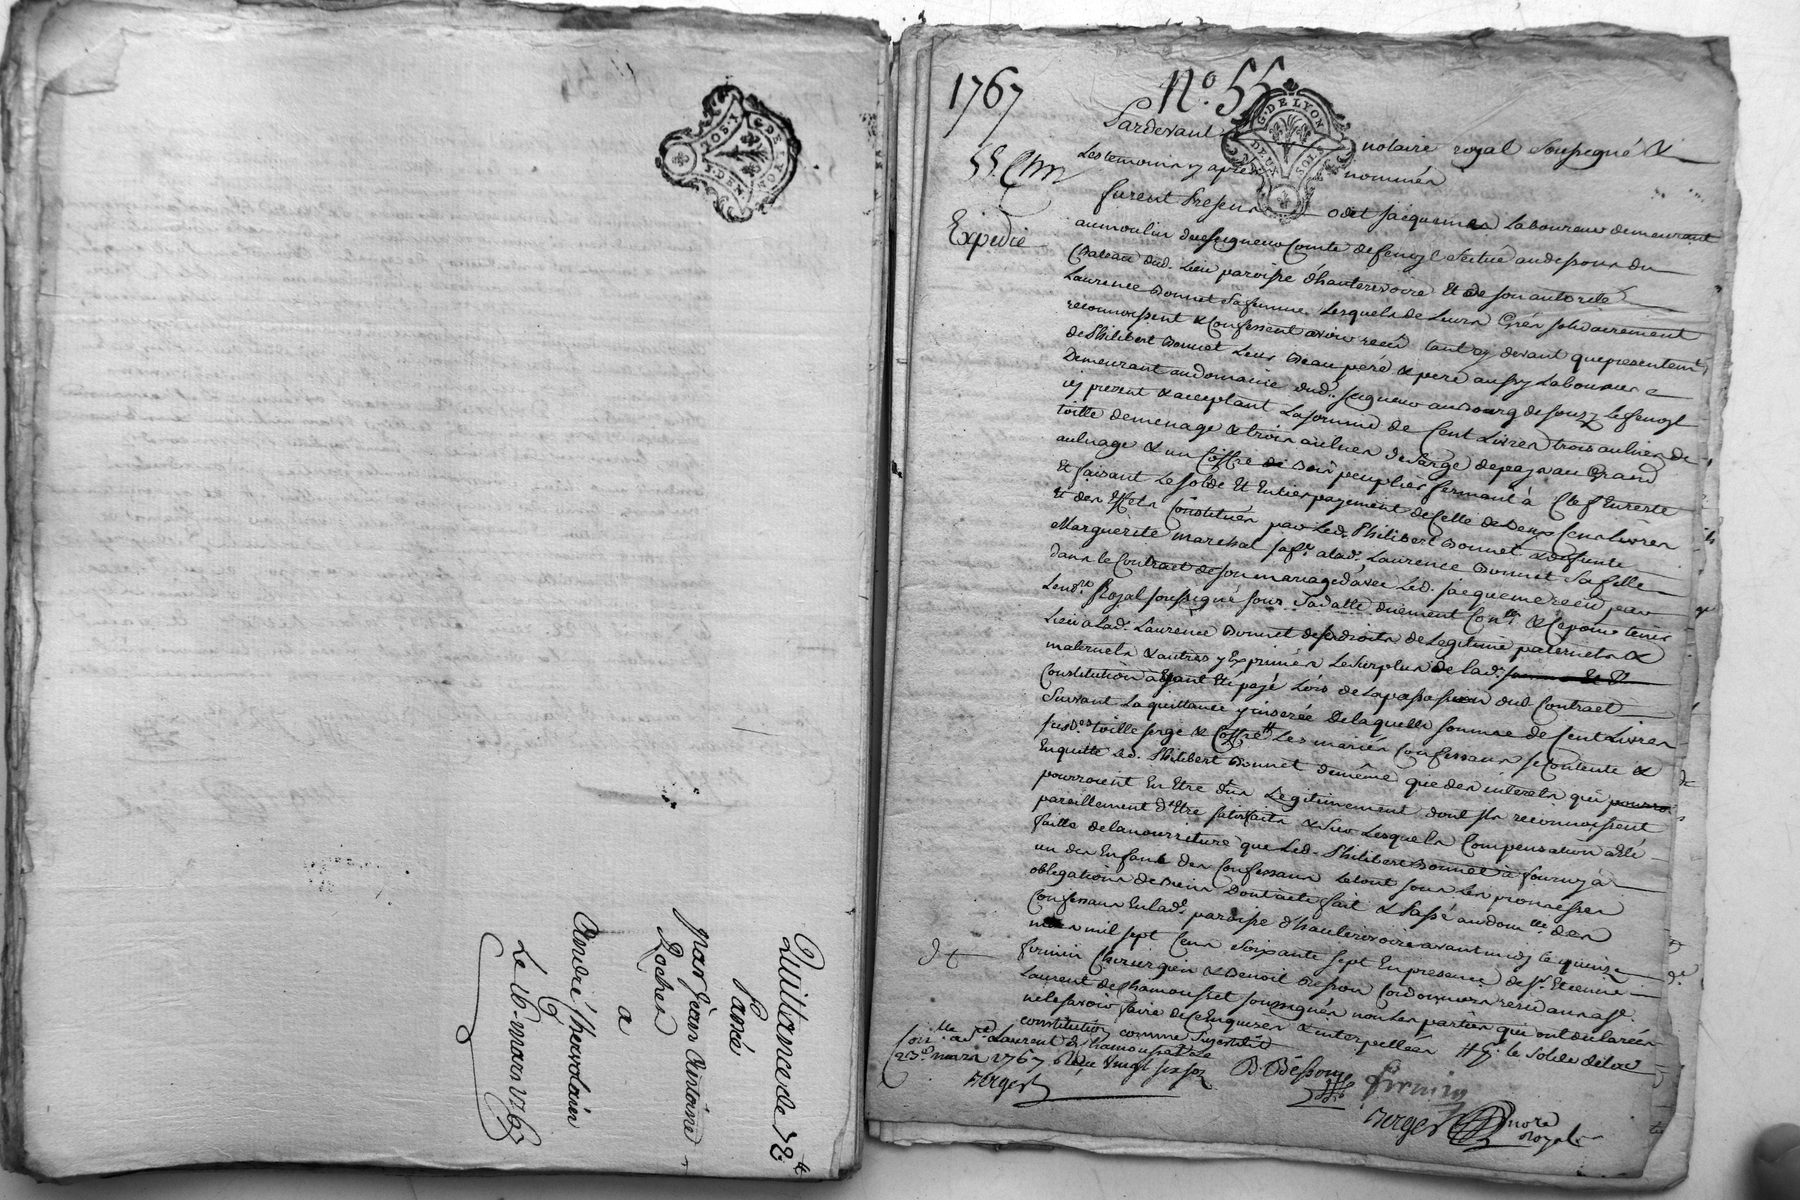 G. DE LYON
X. SOL
DEN. F.
Quittance de 72 ₶
Passé
par Jean Antoine
Rocher
a
André
Le 16 mars 1767
1767
N.º 55
G. DE LYON
DEUX SOLS
55
Expedié
Pardevant notaire royal soussigné &
Les temoins cy après nommés
furent presens odet jacquemes Laboureur demeurant
au moulin du seigneur Comte de fenoyl scitué audessous du
Chateau dud. Lieu paroisse d'hauterivoire Et de son autorité
Laurence Bonnet sa femme Lesquels de Leurs Grés solidairement
reconnoissent & Confessent avoir recu tant cy devant que presentemt
de Philibert Bonnet Leur Beau peré & pere aussy Laboureur
Demeurant au domaine dud. seigneur au Bourg de souzy Le fenoyl
icy present & acceptant La somme de Cent Livres trois aulnes de
toille de menage & trois aulnes de sarge de pays au Grand
aulnage & un Coffre de Bois peuplier fermant à Clef En reste
Et faisant Le solde Et Entier payement de Celle de Deux Cens Livres
Et des Effets Constitués par Led. Philibert Bonnet & defunte
Marguerite marechal sa fe. a lad. Laurence Bonnet sa fille
dans le Contract de son mariage d'avec Led. jacqueme recu par
Le nore. Royal soussigné sous sa datte duement Conlé. & Ce pour tenir
Lieu a Lad. Laurence Bonnet de ses droits de Legitime paternels &
maternels & autres y Exprimés Le surplus de lad.
Constitution ayant Eté payé Lors de La passassion dud Contract
suivant La quittance y inserée De laquelle somme de Cent Livres
susd.es toille serge & Coffre Les mariés Confessans se Contente &
En quitte Led. Philibert Bonnet de même que des intérets qui
pourroient En Etre dus Legitimement dont ils reconnoissent
pareillement d'Etre satisfaits & sur Lesquels Compensation a Eté
faitte de la nourriture que Led. Philibert Bonnet à fourny à
un des Enfans des Confessans Le tout sous Les promesses
obligations de Biens Dont acte fait & Passé au domlle. des
Confessans En lad.e paroisse d'hauterivoire avant midy le quinze
mars mil sept Cens soixante sept En presence de sr. Etienne
firmin Chirurgien & Benoit Besson Cordonniers residans a st.
Laurent de Chamousset soussignés non Les parties qui ont declarées
ne le savoir faire de Ce Enquises & interpellées le solde de lad.
constitution comme
Conlle. a st. Laurent de Chamousset Le
23e mars 1767 Reçu vingt six sols
Berger
B. Besson
firmin
Berger
nore
Royal